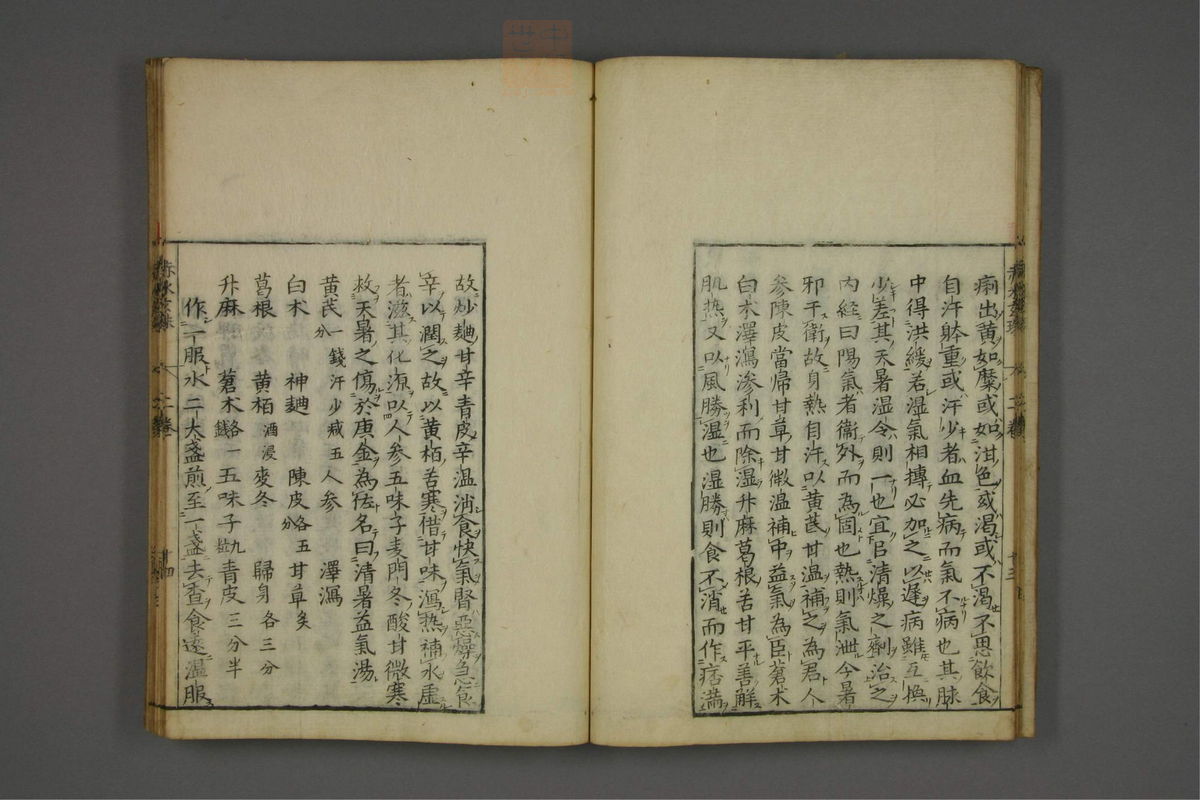 痢出黄如糜或如泔色或渴或不渴不思飲食
自汗躰重或汗少者血先病而氣不病也其脉
中得洪緩若湿氣相搏必加之以遅病雖互換
少差其天暑湿令則一也宜以清燥之劑治之
内經曰陽氣者衞外而為固也熱則氣泄今暑
邪干衛故身熱自汗以黄芪甘温補之為君人
参陳皮當帰甘草甘微温補中益氣為臣蒼朮
白朮澤瀉滲利而除湿升麻葛根苦甘平善解
肌热又以風勝湿也湿勝則食不消而作痞満
故炒麯甘辛青皮辛温消食快氣腎惡燥急食
辛以潤之故以黄栢苦寒借甘味瀉热補水虚
者滋其化源以人参五味子麦門冬酸甘微寒
救天暑之傷於庚金為佐名曰清暑益氣湯
黄芪一錢汗少减五分 人参 澤瀉
白朮 神麯 陳皮各五分 甘草炙
葛根 黄栢酒浸 麥冬 歸身各三分
升麻 蒼朮各一錢 五味子九粒 青皮三分半
作一服水二大盞煎至一盞去查食遠温服